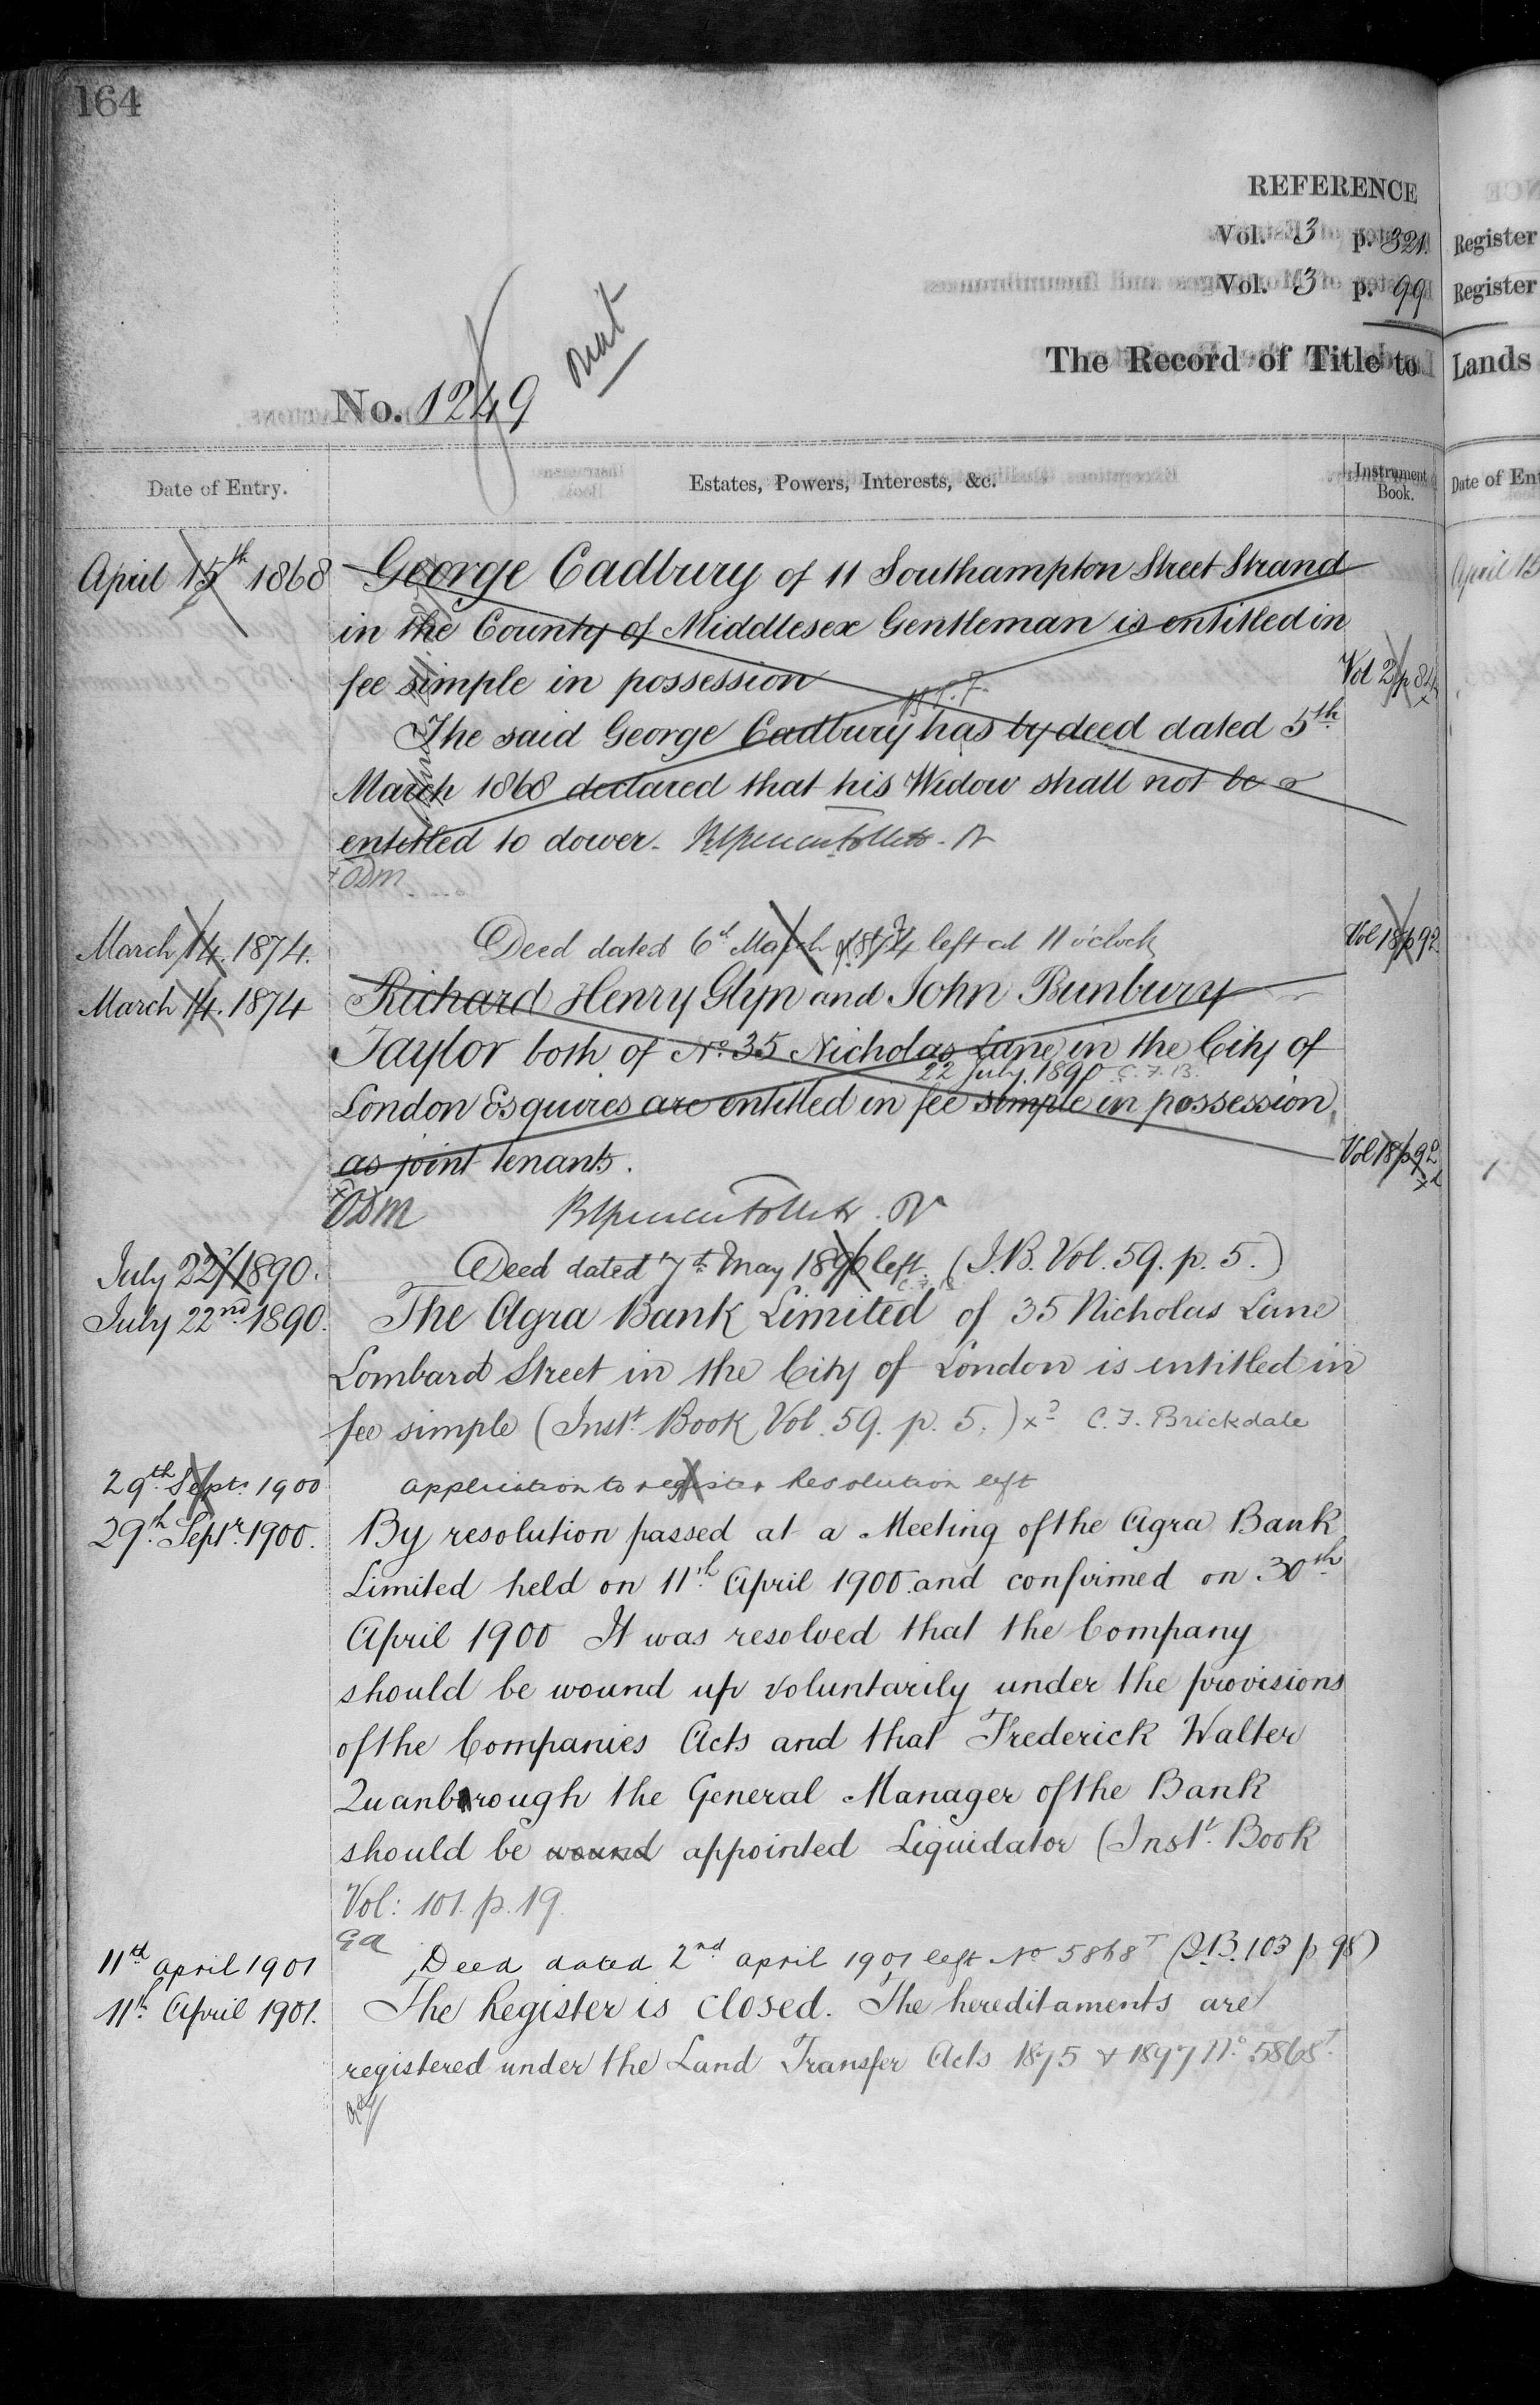 164
REFERENCE
Vol. 3 p. 321. Register
Vol. 3 p. 99 Register
The Record of Title to Lands
No. 1249
Date of Entry. Estates, Powers, Interests, &c. Instrument Book. Date of Ent
April 15th 1868 George Cadbury of 11 Southampton Street Strand
in the County of Middlesex Gentleman is entitled in
fee simple in possession Vol 2 p 84
The said George Cadbury has by deed dated 5th
March 1868 declared that his Widow shall not be
entitled to dower.
ODM
March 14. 1874. Deed dated 6th March 1874 left at 11 o'clock Vol 18 p 92
March 14. 1874 Richard Henry Glyn and John Bunbury
Taylor both of No. 35 Nicholas Lane in the City of
22 July. 1890 C. F. B.
London Esquires are entitled in fee simple in possession
as joint tenants. Vol 18 p 92
ODM
July 22nd 1890. Deed dated 7th May 1890 left. (I.B. Vol. 59. p. 5.)
July 22nd 1890. The Agra Bank Limited of 35 Nicholas Lane
Lombard Street in the City of London is entitled in
fee simple (Inst. Book Vol. 59. p. 5.) C. F. Brickdale
29th Sept. 1900 Application to register Resolution left
29th Septr. 1900. By resolution passed at a Meeting of the Agra Bank
Limited held on 11th April 1900 and confirmed on 30th
April 1900 It was resolved that the Company
should be wound up voluntarily under the provisions
of the Companies Acts and that Frederick Walter
Quanbrough the General Manager of the Bank
should be wound appointed Liquidator (Inst. Book
Vol: 101. p. 19.
11th April 1901 Deed dated 2nd April 1901 left No 5868T (I.B. 103 p 98)
11th April 1901. The Register is closed. The hereditaments are
registered under the Land Transfer Acts 1875 & 1897 No. 5868T.